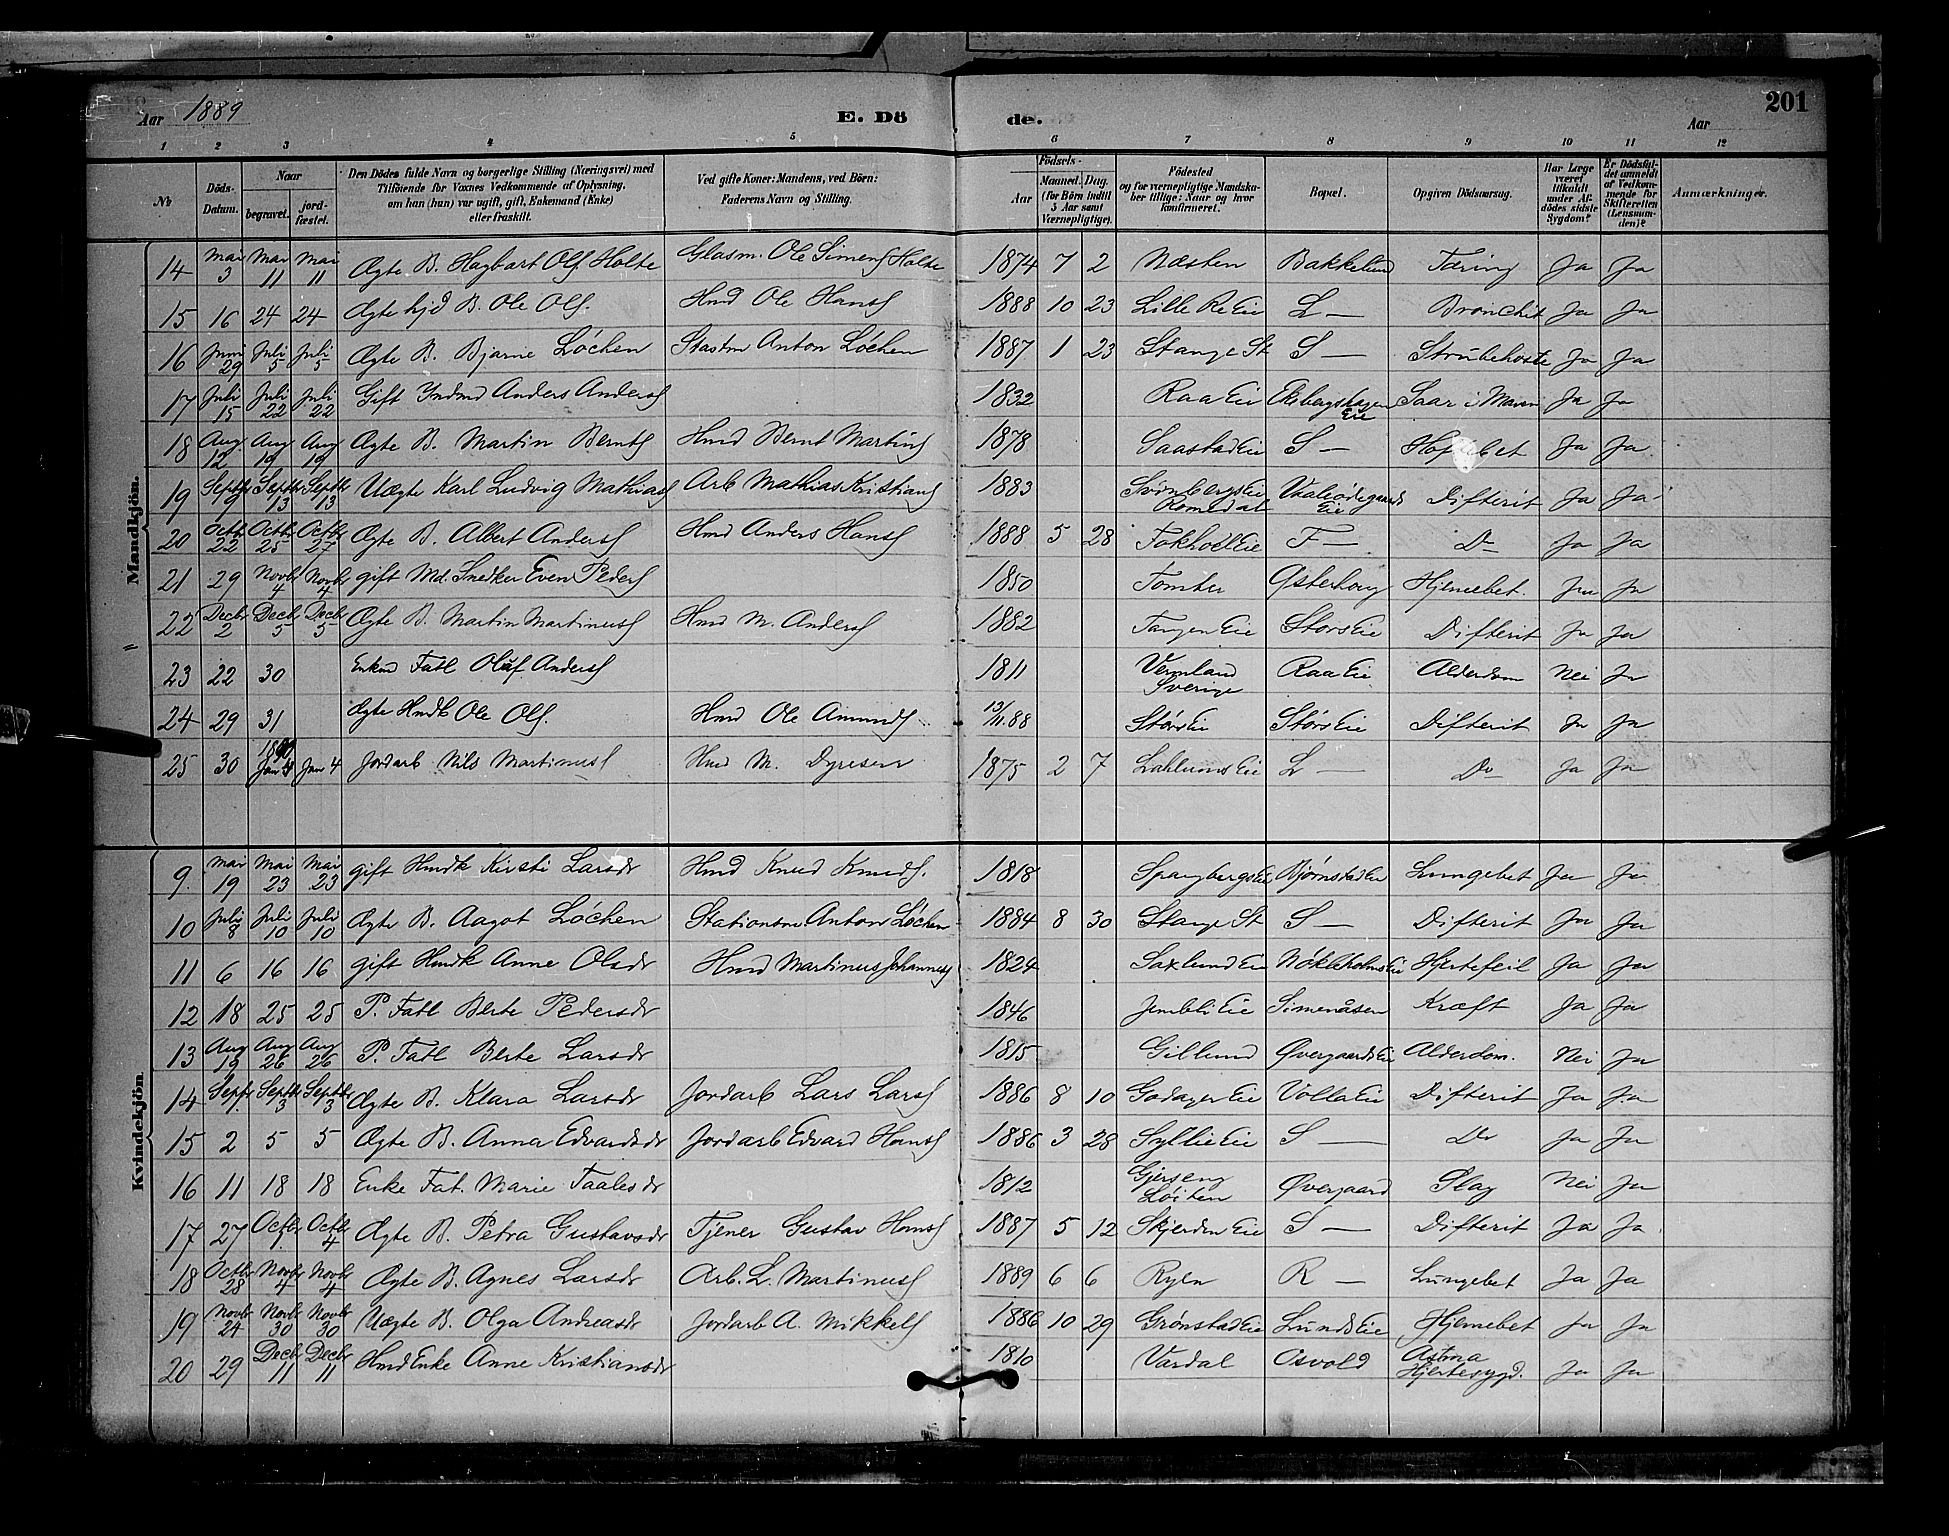 Aar 1889 E. Dö de. Aar 201
1 2 3 4 5 6 7 8 9 10 11 12
№ Döds-Datum. Naar begravet. jord-fæstet. Den Dödes fulde Navn og borgerlige Stilling (Næringsvei) med Tilföiende for Voxnes Vedkommende af Oplysning, om han (hun) var ugift, gift, Enkemand (Enke) eller fraskilt. Ved gifte Koner: Mandens, ved Börn: Faderens Navn og Stilling. Födsels- Aar Maaned. Dag. (for Börn indtil 5 Aar samt Værnepligtige). Födested og for værnepligtige Mandskaber tillige: Naar og hvor konfirmeret. Bopæl. Opgiven Dödsaarsag. Har Læge været tilkaldt under Afdödes sidste Sygdom? Er Dödsfaldet anmeldt af Vedkommende for Skifteretten (Lensmanden)? Anmærkninger.
Mandkjön.
14 Mai 3 Mai 11 Mai 11 Ægte B. Hagbart Ols. Holte Glasm. Ole Simens Holte 1874 7 2 Næsten Bakkelund Tæring Ja Ja
15 16 24 24 Ægte hjd B. Ole Ols. Hmd Ole Hans 1888 10 23 Lille Re Eie L — Bronchit Ja Ja
16 Juni 29 Juli 5 Juli 5 Ægte B. Bjarne Løchen Stastm Anton Løchen 1887 1 23 Stange St S — Strubehoste Ja Ja
17 Juli 15 Juli 22 Juli 22 Gift Indmd Anders Anders 1832 Raa Eie Ekebergshagen Eie Saar i Maven Ja Ja
18 Aug 12 Aug 19 Aug 19 Ægte B. Martin Bernts Hmd Bernt Martins 1878 Saastad Eie S — Ja Ja
19 Septbr 9 Septbr 13 Septbr 13 Uægte Karl Ludvig Mathias Arb Mathias Kristians 1883 Romedal Eie Difterit Ja Ja
20 Octbr 22 Octbr 25 Octbr 27 Ægte B. Albert Anders Hmd Anders Hans 1888 5 28 Fokhol Eie F — Do Ja Ja
21 29 Novbr 4 Novbr 4 gift Md. Snedker Even Peders 1850 Tomter Østerhaug Hjernebet. Ja Ja
22 Decbr 2 Decbr 5 Decbr 5 Ægte B. Martin Martinus Hmd M. Anders 1882 Tangen Eie Stors Eie Difterit Ja Ja
23 22 30 Enkmd Fatl Oluf Anders 1811 Vermland Sverige Raa Eie Alderdom Nei Ja
24 29 31 Ægte Hmdb Ole Ols. Hmd Ole Amunds 13/11.88 Størs Eie Størs Eie Difterit Ja Ja
25 30 1890 Jan 4 Jan 4 Jordarb Nils Martinus Hmd M. Dyresen 1875 2 7 Lahlums Eie L — Do Ja Ja
Kvindekjön.
9. Mai 19 Mai 23 Mai 23 gift Hmdk Kirsti Larsdr Hmd Knud Knuds. 1818 Spangbergs Eie Bjørnstad Eie Lungebet Ja Ja
10 Juli 8 Juli 10 Juli 10 Ægte B. Aagot Løchen Stationsm. Anton Løchen 1884 8 30 Stange St S — Difterit Ja Ja
11 6 16 16 gift Hmdk Anne Olsdr Hmd Martinus Johannes 1824 Saxlund Eie Nøkleholms Eie Hjertefeil Ja Ja
12 18 25 25 P. Fatl Berte Pedersdr 1846 Jembli Eie Simenåsen Kræft Ja Ja
13 Aug 19 Aug 26 Aug 26 P. Fatl Berte Larsdr 1815 Gillund Øvergaards Eie Alderdom. Nei Ja
14 Septbr 1. Septbr 3 Septbr 3 Ægte B. Klara Larsdr Jordarb Lars Lars 1886 8 10 Godager Eie Volla Eie Difterit Ja Ja
15 2 5 5 Ægte B. Anna Edvardsdr Jordarb Edvard Hans 1886 3 28 Syllie Eie S — Do Ja Ja
16 11 18 18 Enke Fat. Marie Taalesdr 1812 Løiten Øvergaard Slag Nei Ja
17 27 Octbr 1. Octbr 4 Ægte B. Petra Gustavsdr Tjener Gustav Hans 1887 5 12 Skjerden Eie S — Difterit Ja Ja
18 Octbr 28 Novbr 4 Novbr 4 Ægte B. Agnes Larsdr Arb. L. Martinus 1889 6 6 Ryen R — Lungebet Ja Ja
19 Novbr 24 Novbr 30 Novbr 30 Uægte B. Olga Andreasdr Jordarb A. Mikkels 1886 10 29 Grønstad Eie Lunds Eie Hjernebet Ja Ja
20 29 Decbr 11 Decbr 11 Hmd Enke Anne Kristiansdr 1810 Vardal Osvold Astma Hjertesygd. Ja Ja